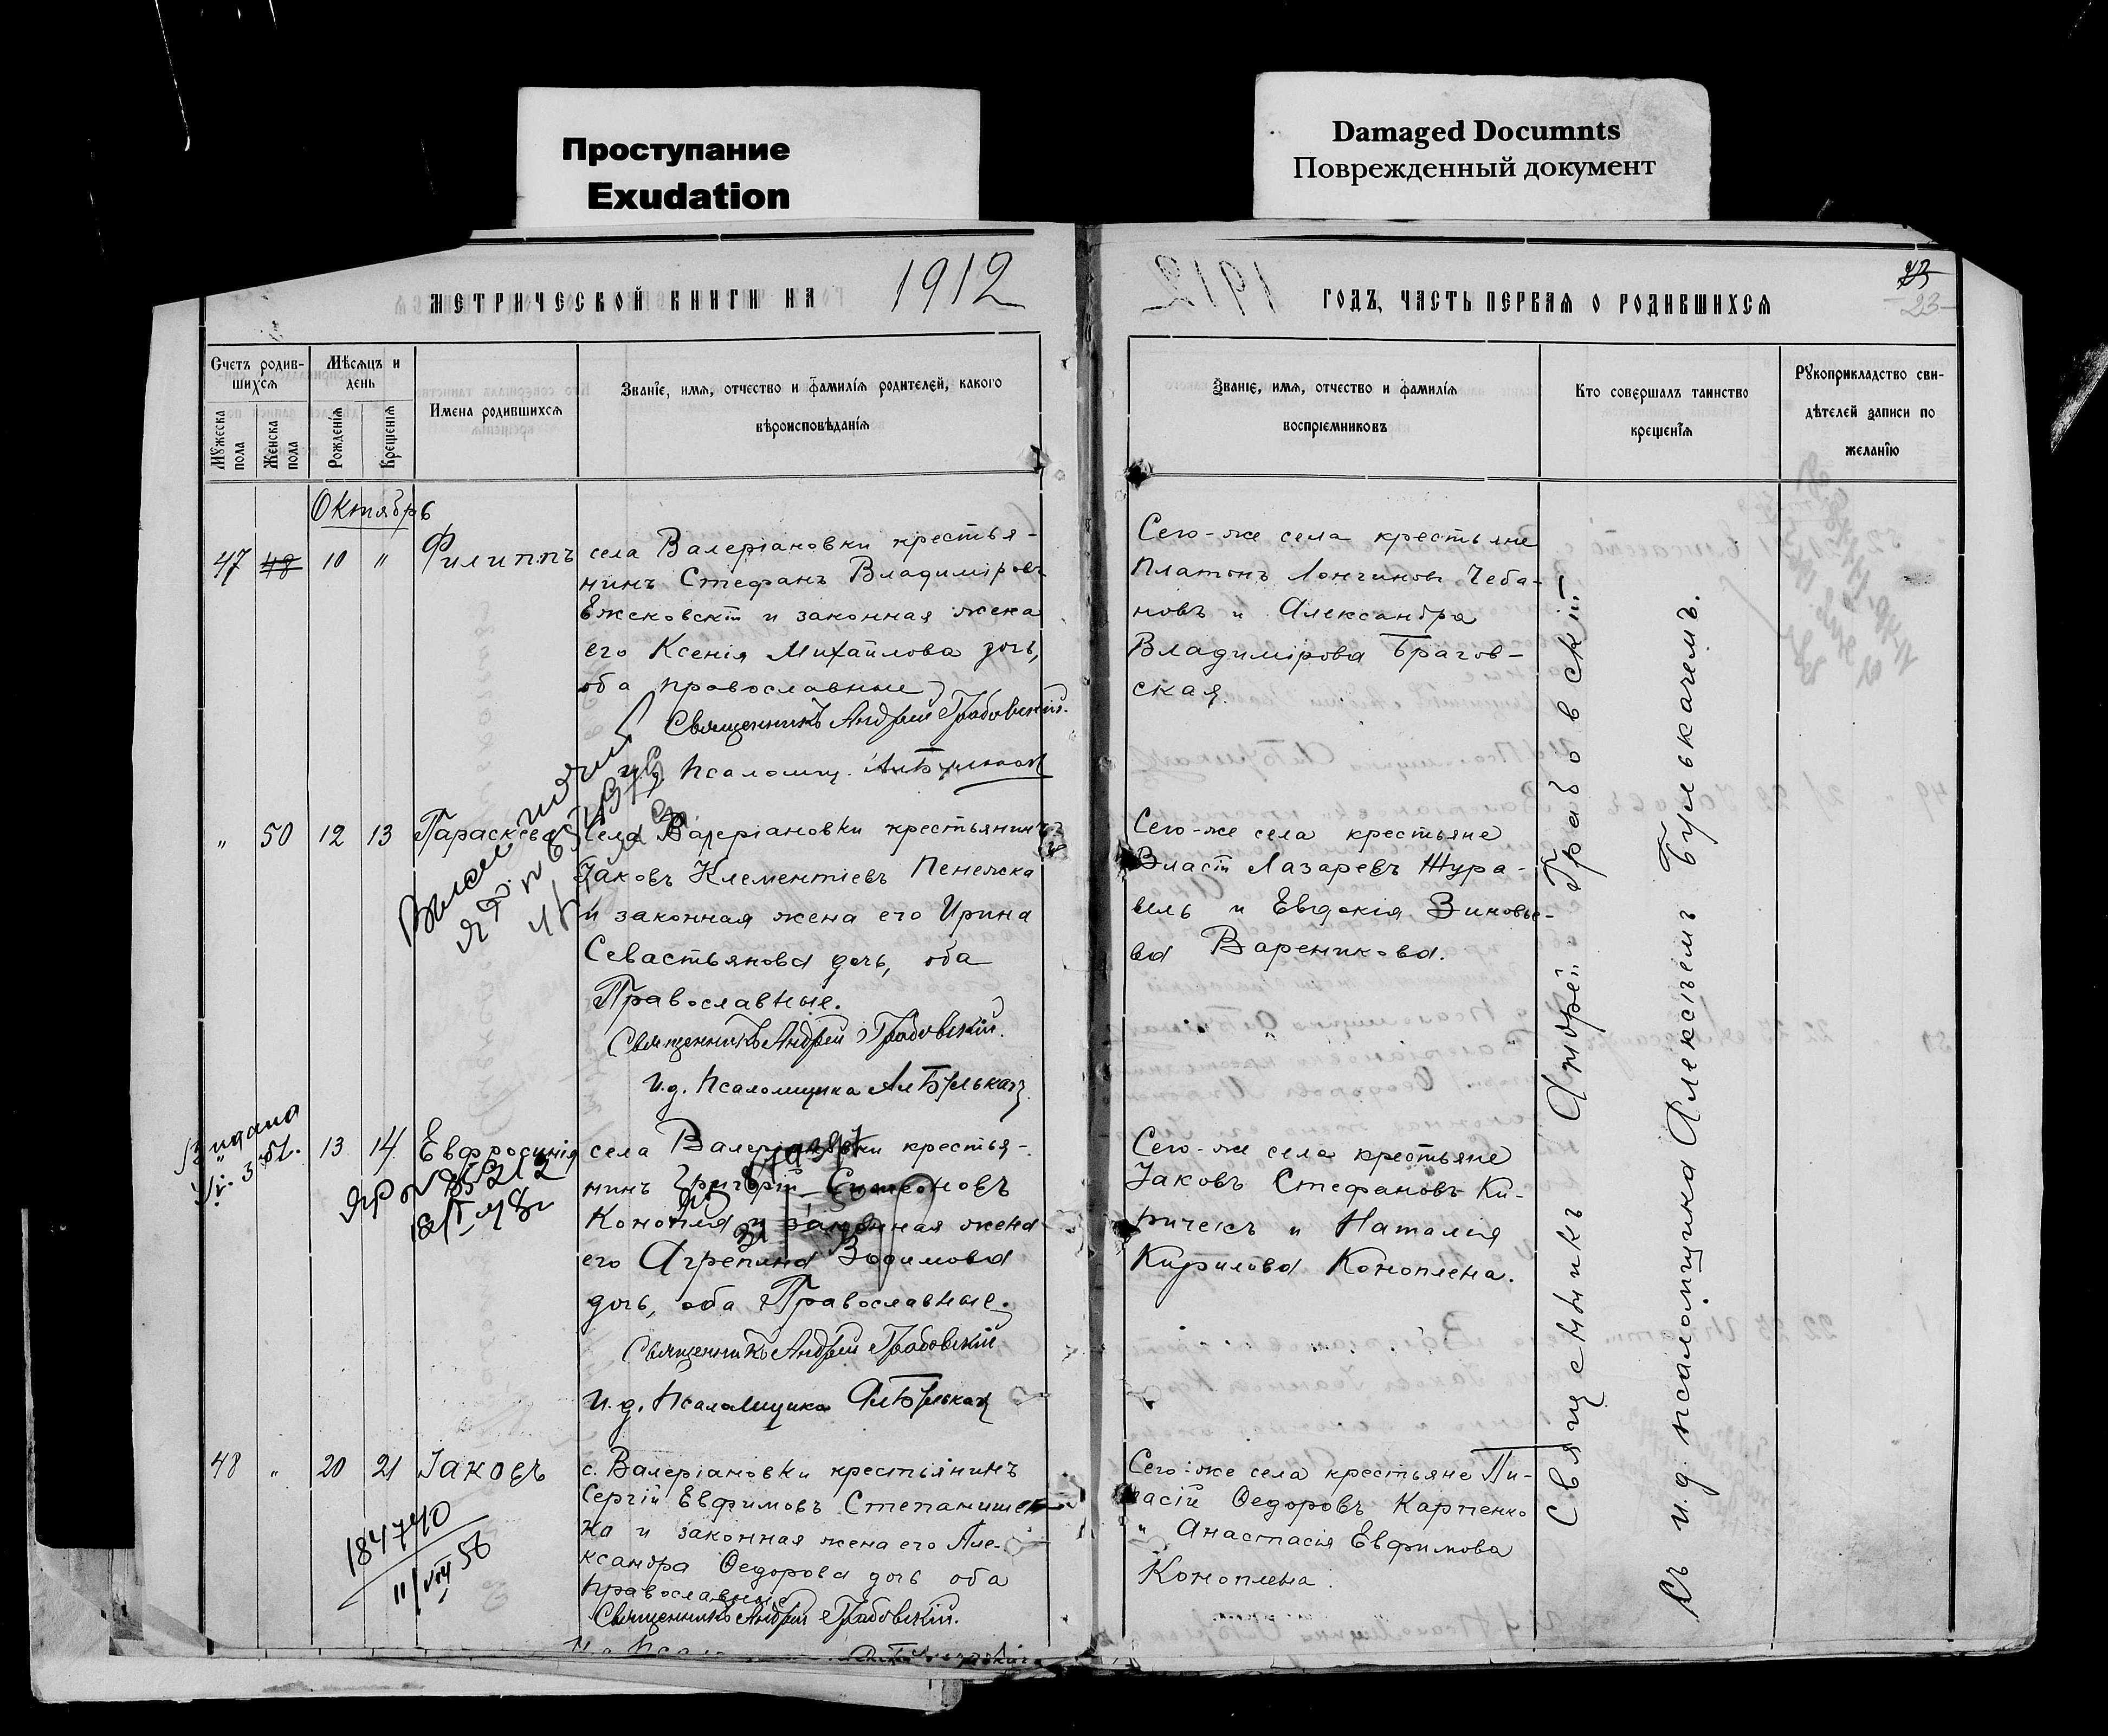 Проступание
Exudation
Damaged Documnts
Поврежденный документ
МЕТРИЧЕСКОЙ КНИГИ НА 1912
ГОДЪ, ЧАСТЬ ПЕРВАЯ О РОДИВШИХСЯ
23
Счетъ родив-
шихся
Мужеска пола
Женска пола
Мѣсяцъ и
день
Рожденія
Крещенія
Имена родившихся
Званіе, имя, отчество и фамилія родителей, какого
вѣроисповѣданія
Званіе, имя, отчество и фамилія
воспріемниковъ
Кто совершалъ таинство
крещенія
Рукоприкладство сви-
дѣтелей записи по
желанію
Октябрь
47 48 10 " Филиппъ
села Валеріановки крестья-
нинъ Стефанъ Владиміровъ
и законная жена
его Ксенія Михайлова дочь,
оба православные
Священникъ Андрей Грабовскій.
Псаломщ.
Сего-же села крестьяне
Платонъ Лонгиновъ Чеба-
новъ и Александра
Владимірова Брагов-
ская.
" 50 12 13 Параскева
Села Валеріановки крестьянинъ
Іаковъ Клементіевъ
и законная жена его Ирина
Севастьянова дочь, оба
Православные.
Священникъ Андрей Грабовскій.
И.д. Псаломщика Ал Булькач
Сего-же села крестьяне
Власій Лазаревъ Жура-
вель и Евдокія Зиновье-
ва Вареникова.
51. 13 14 Евфросинія
села Валеріановки крестья-
нинъ Григорій Симеоновъ
Конопля и законная жена
его Агрепина
дочь, оба Православные.
Священникъ Андрей Грабовскій
И.д. Псаломщика Ал Булькач
Сего-же села крестьяне
Іаковъ Стефановъ Ки-
ричекъ и Наталія
Кирилова Коноплена.
48 " 20 21 Іаковъ
184740
11/VIII 56
с. Валеріановки крестьянинъ
Сергій Евфимовъ Степанишен-
ко и законная жена его Але-
ксандра Ѳедорова дочь оба
православные
Священникъ Андрей Грабовскій.
Сего-же села крестьяне
Ѳедоровъ Карпенко
и Анастасія Евфимова
Коноплена.
Священникъ Андрей Грабовскій
съ и.д. псаломщика Алексѣемъ Булькачемъ.